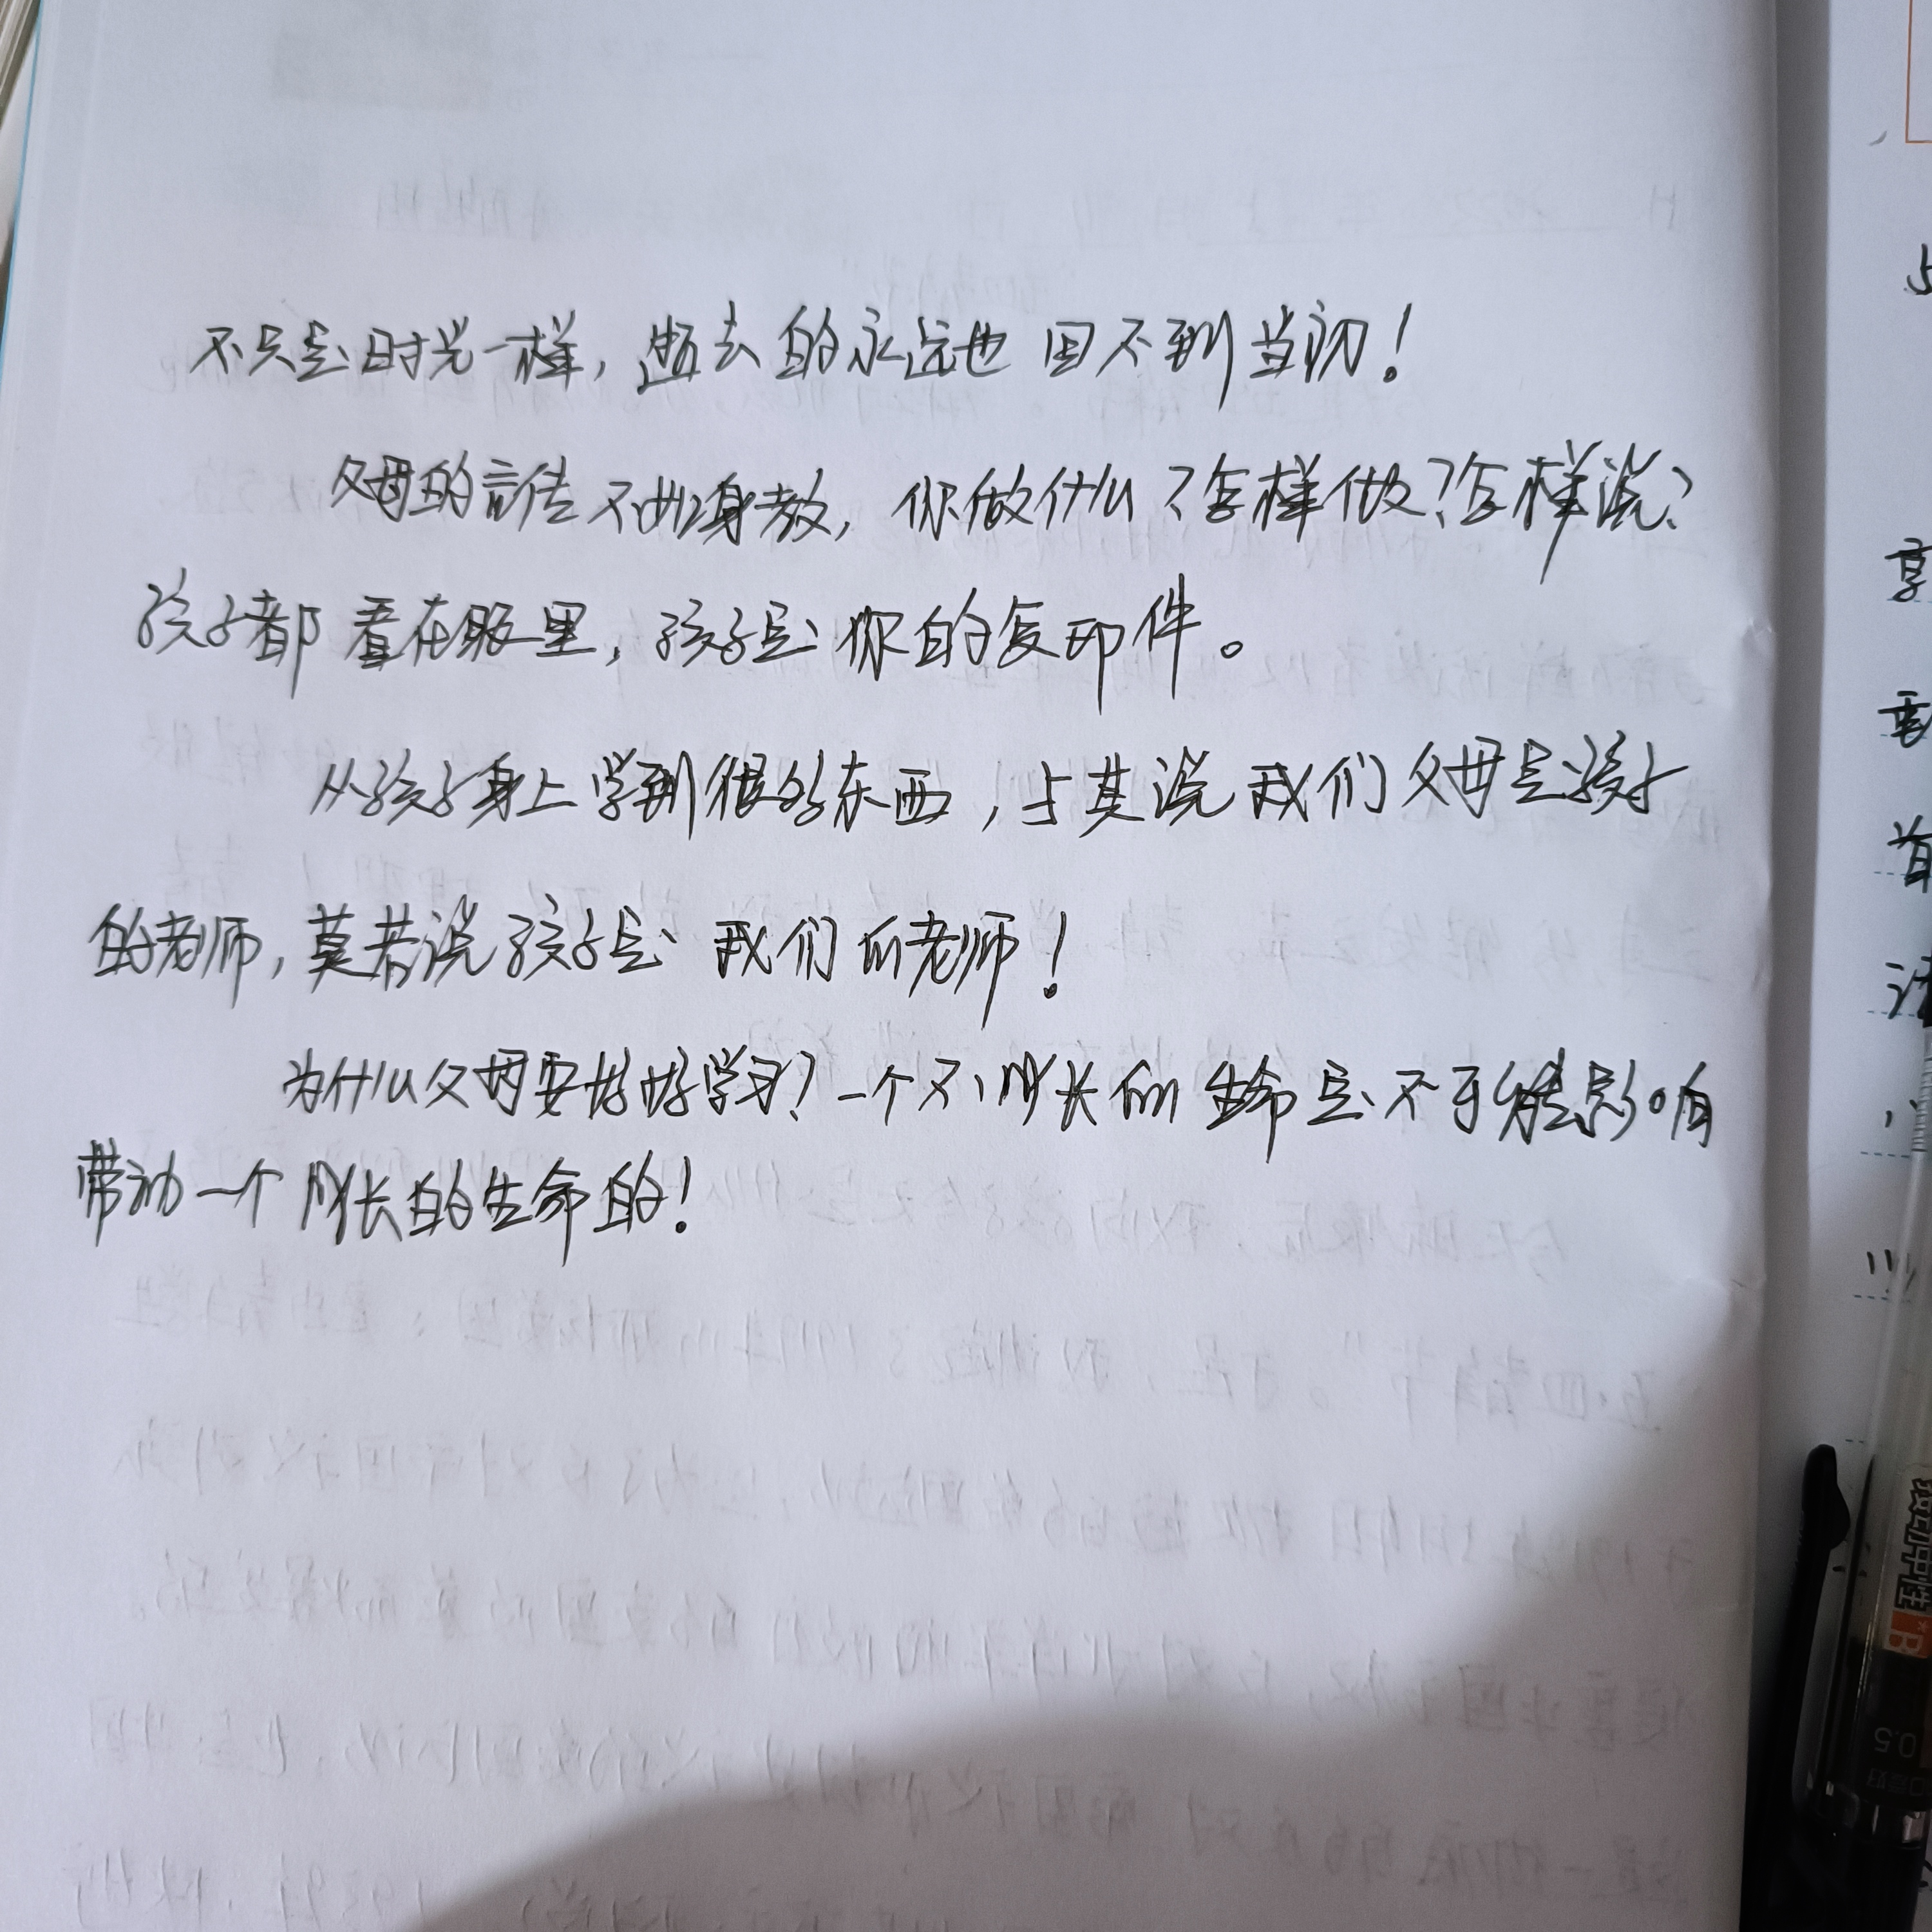 不只是时光一样，逝去的永远也回不到当初！
父母的言传不如身教，你做什么？怎样做？怎样说？
孩子都看在眼里，孩子是你的复印件。
从孩子身上学到很多东西，与其说我们父母是孩子
的老师，莫若说孩子是我们的老师！
为什么父母要好好学习？一个不成长的生命是不可能影响
带动一个成长的生命的！
享
首
0.5